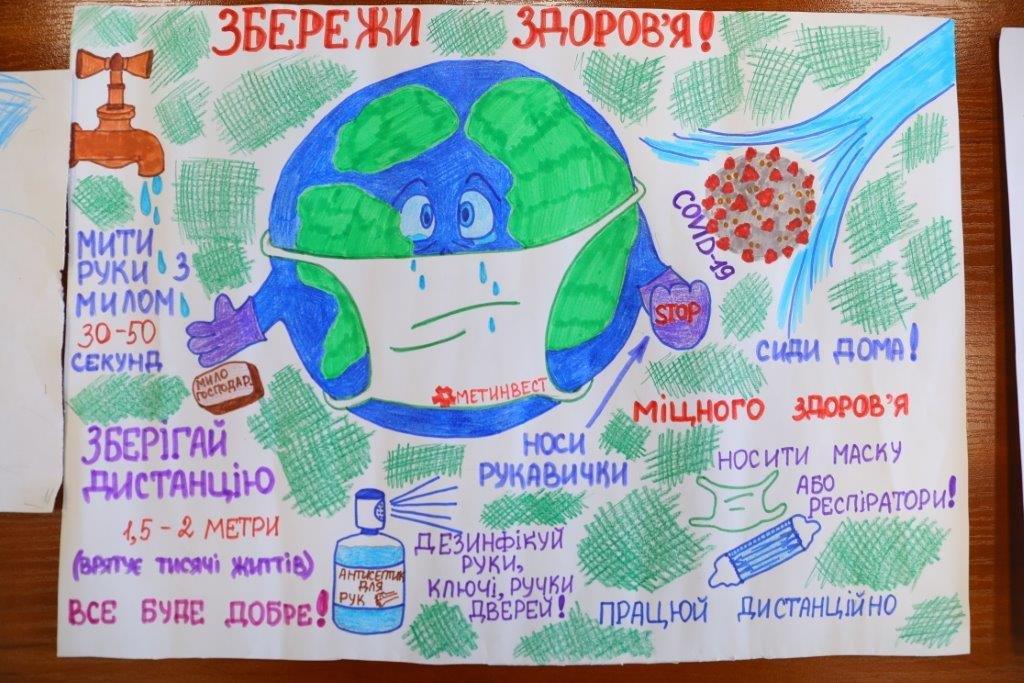 ЗБЕРЕЖИ ЗДОРОВ'Я!
МИТИ
РУКИ З
МИЛОМ
30-50
СЕКУНД
COVID-19
STOP
СИДИ ДОМА!
МИЛО
ГОСПОДАР.
МЕТИНВЕСТ
МІЦНОГО ЗДОРОВ'Я
НОСИ
РУКАВИЧКИ
ЗБЕРІГАЙ
ДИСТАНЦІЮ
1,5-2 МЕТРИ
(ВРЯТУЄ ТИСЯЧІ ЖИТТІВ)
ВСЕ БУДЕ ДОБРЕ!
АНТИСЕПТИК
ДЛЯ
РУК
ДЕЗИНФІКУЙ
РУКИ,
КЛЮЧІ, РУЧКИ
ДВЕРЕЙ!
НОСИТИ МАСКУ
АБО
РЕСПІРАТОРИ!
ПРАЦЮЙ ДИСТАНЦІЙНО